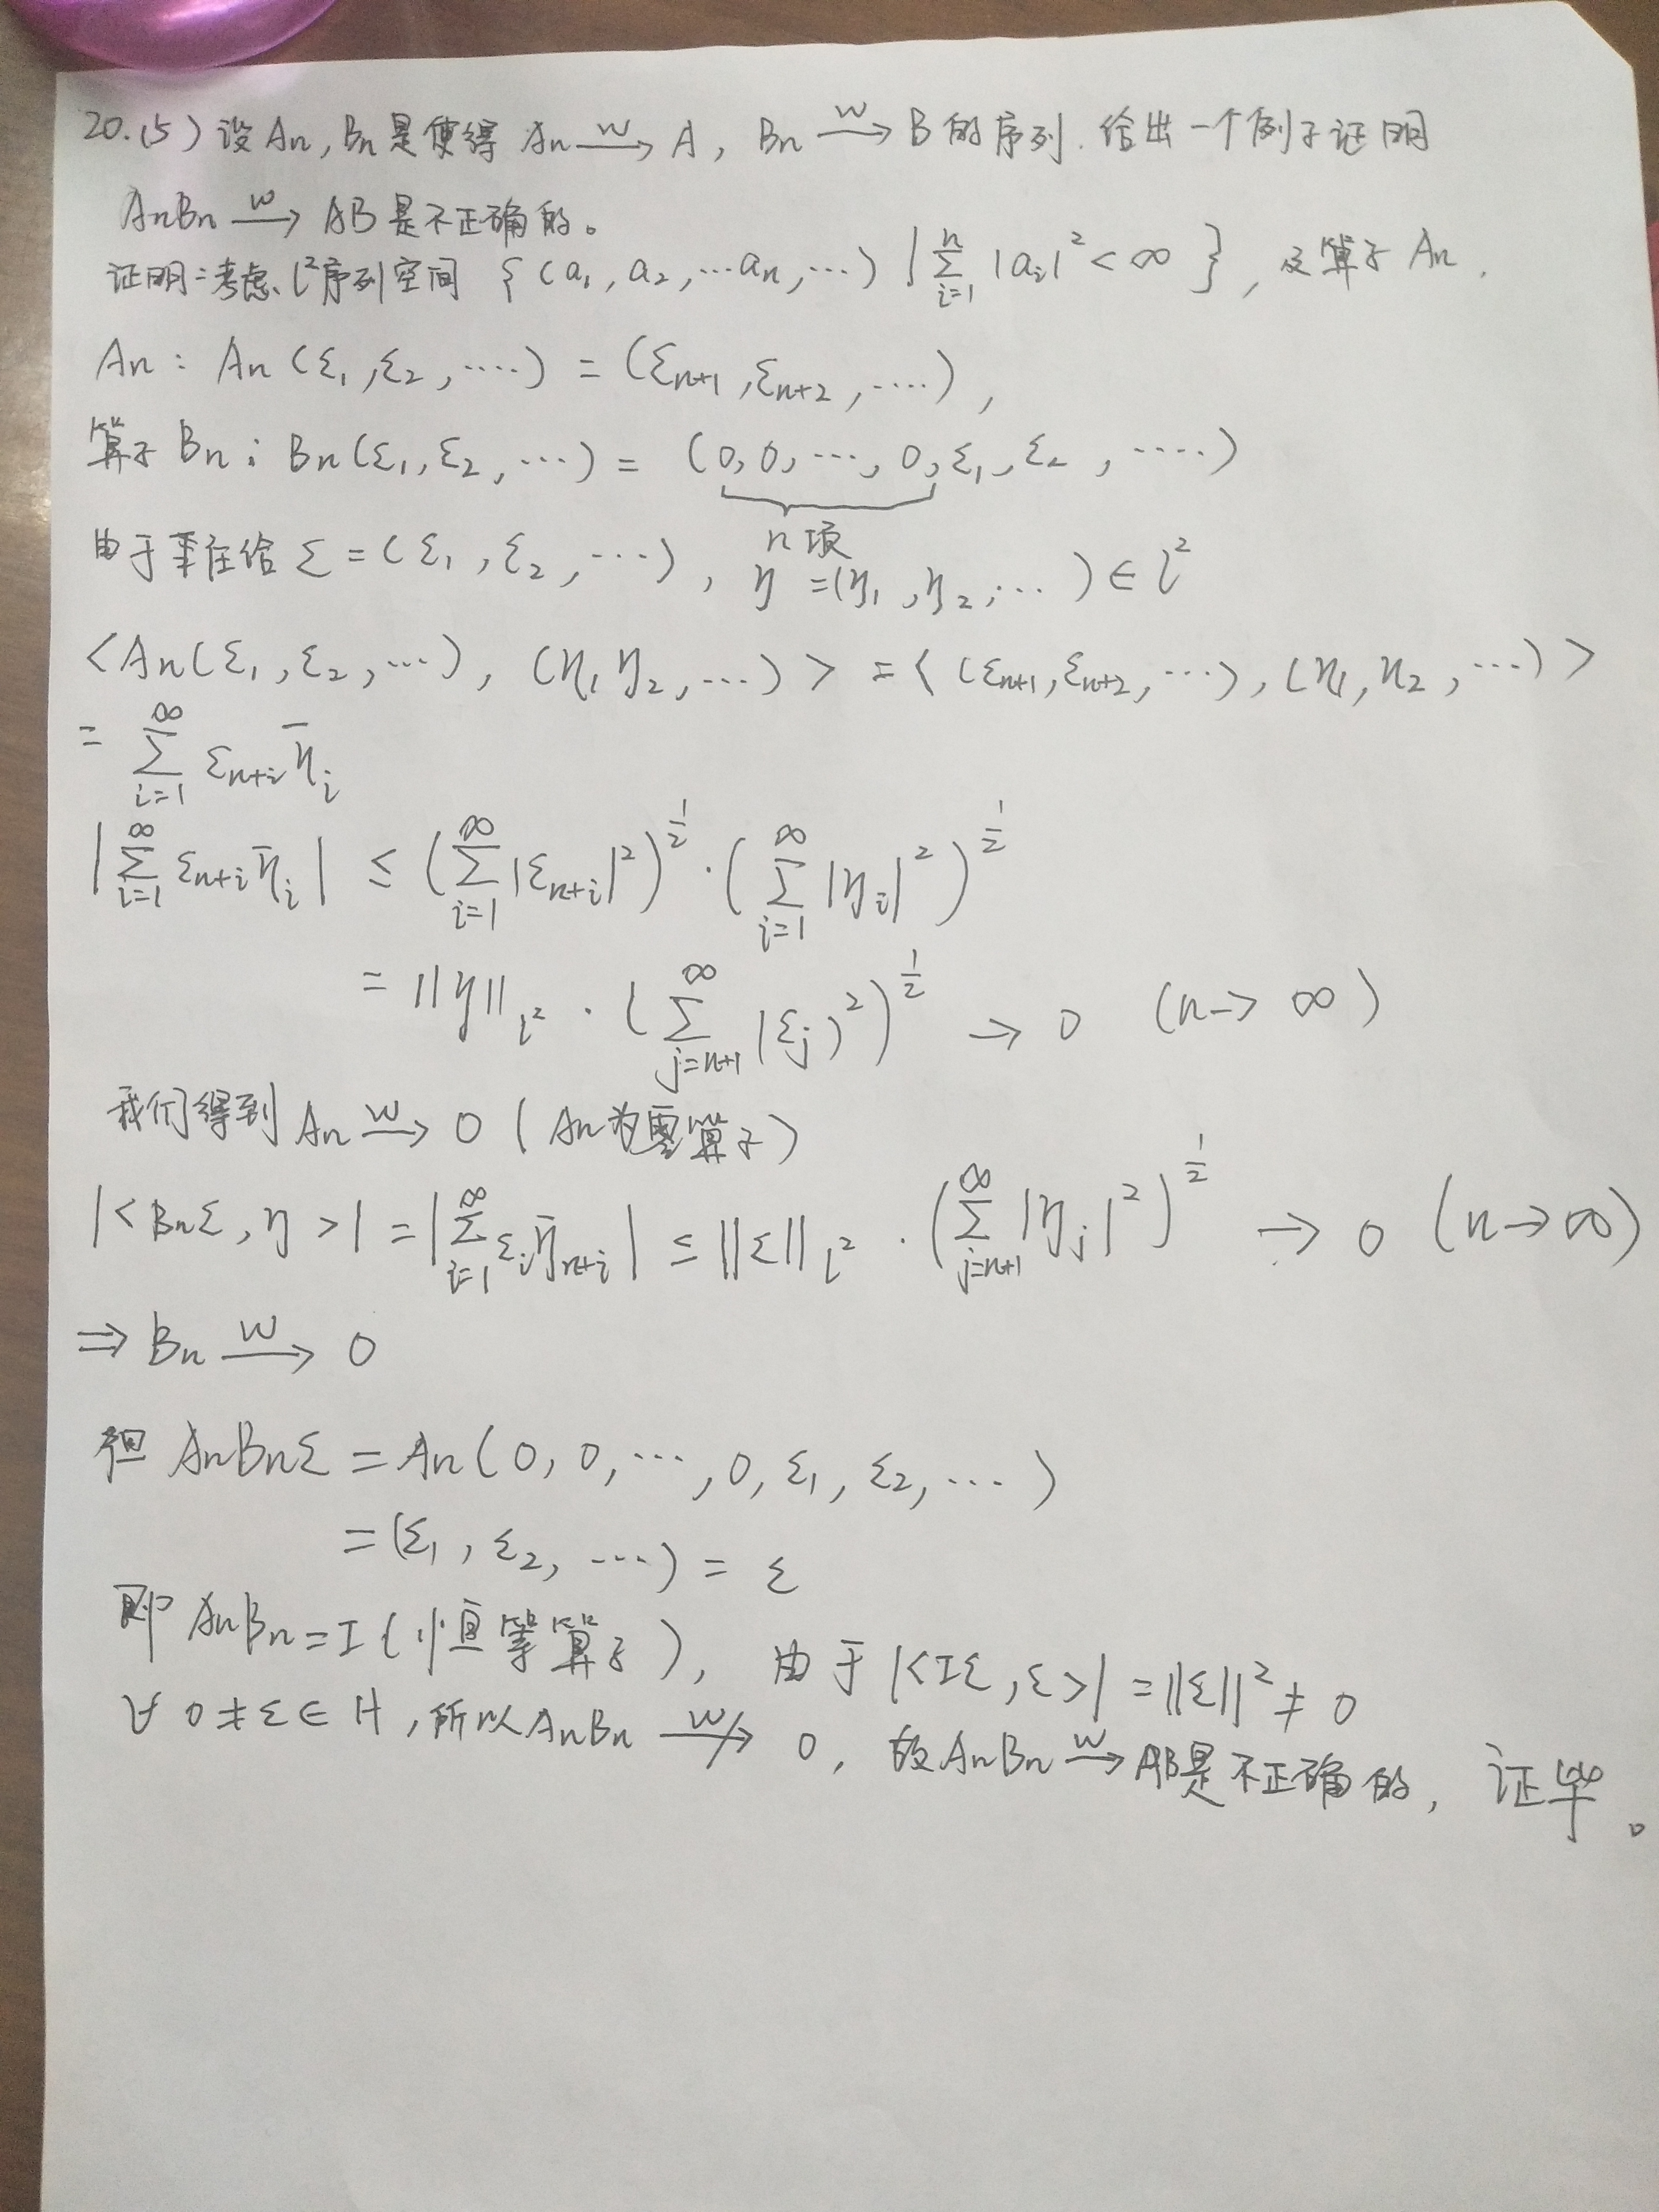 20.(5) 设 An, Bn 是使得 An —w→ A, Bn —w→ B 的序列. 给出一个例子证明
AnBn —w→ AB 是不正确的。
证明:考虑 l² 序列空间 { (a₁, a₂, …an, …) | ∑_{i=1}^{n} |aᵢ|² < ∞ }, 及算子 An.
An : An (ξ₁, ξ₂, ….) = (ξn+1, ξn+2, ….),
算子 Bn : Bn(ξ₁, ξ₂, …) = (0, 0, …, 0, ξ₁, ξ₂, ….)
n 项
由于 任给 ξ = (ξ₁, ξ₂, …), η = (η₁, η₂, …) ∈ l²
<An(ξ₁, ξ₂, …), (η₁ η₂, …)> = <(ξn+1, ξn+2, …), (η₁, η₂, …)>
= ∑_{i=1}^{∞} ξn+i η̄ᵢ
|∑_{i=1}^{∞} ξn+i η̄ᵢ| ≤ (∑_{i=1}^{∞} |ξn+i|²)^{1/2} · (∑_{i=1}^{∞} |ηᵢ|²)^{1/2}
= ||η||_{l²} · (∑_{j=n+1}^{∞} |ξj)²)^{1/2} → 0 (n → ∞)
我们得到 An —w→ 0 ( An为零算子)
|<Bnξ, η>| = |∑_{i=1}^{∞} ξᵢ η̄n+i| ≤ ||ξ||_{l²} · (∑_{j=n+1}^{∞} |ηj|²)^{1/2} → 0 (n→∞)
⇒ Bn —w→ 0
但 AnBnξ = An(0, 0, …, 0, ξ₁, ξ₂, …)
= (ξ₁, ξ₂, …) = ξ
即 AnBn = I (恒等算子), 由于 |<Iξ, ξ>| = ||ξ||² ≠ 0
∀ 0 ≠ ξ ∈ H, 所以 AnBn —w↛ 0, 故 AnBn —w→ AB是不正确的, 证毕。